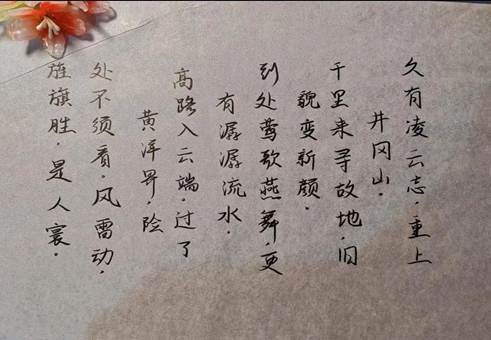 久有凌云志.重上
井冈山.
千里来寻故地.旧
貌变新颜.
到处莺歌燕舞.更
有潺潺流水.
高路入云端.过了
黄洋界.险
处不须看.风雷动.
旌旗胜.是人寰.